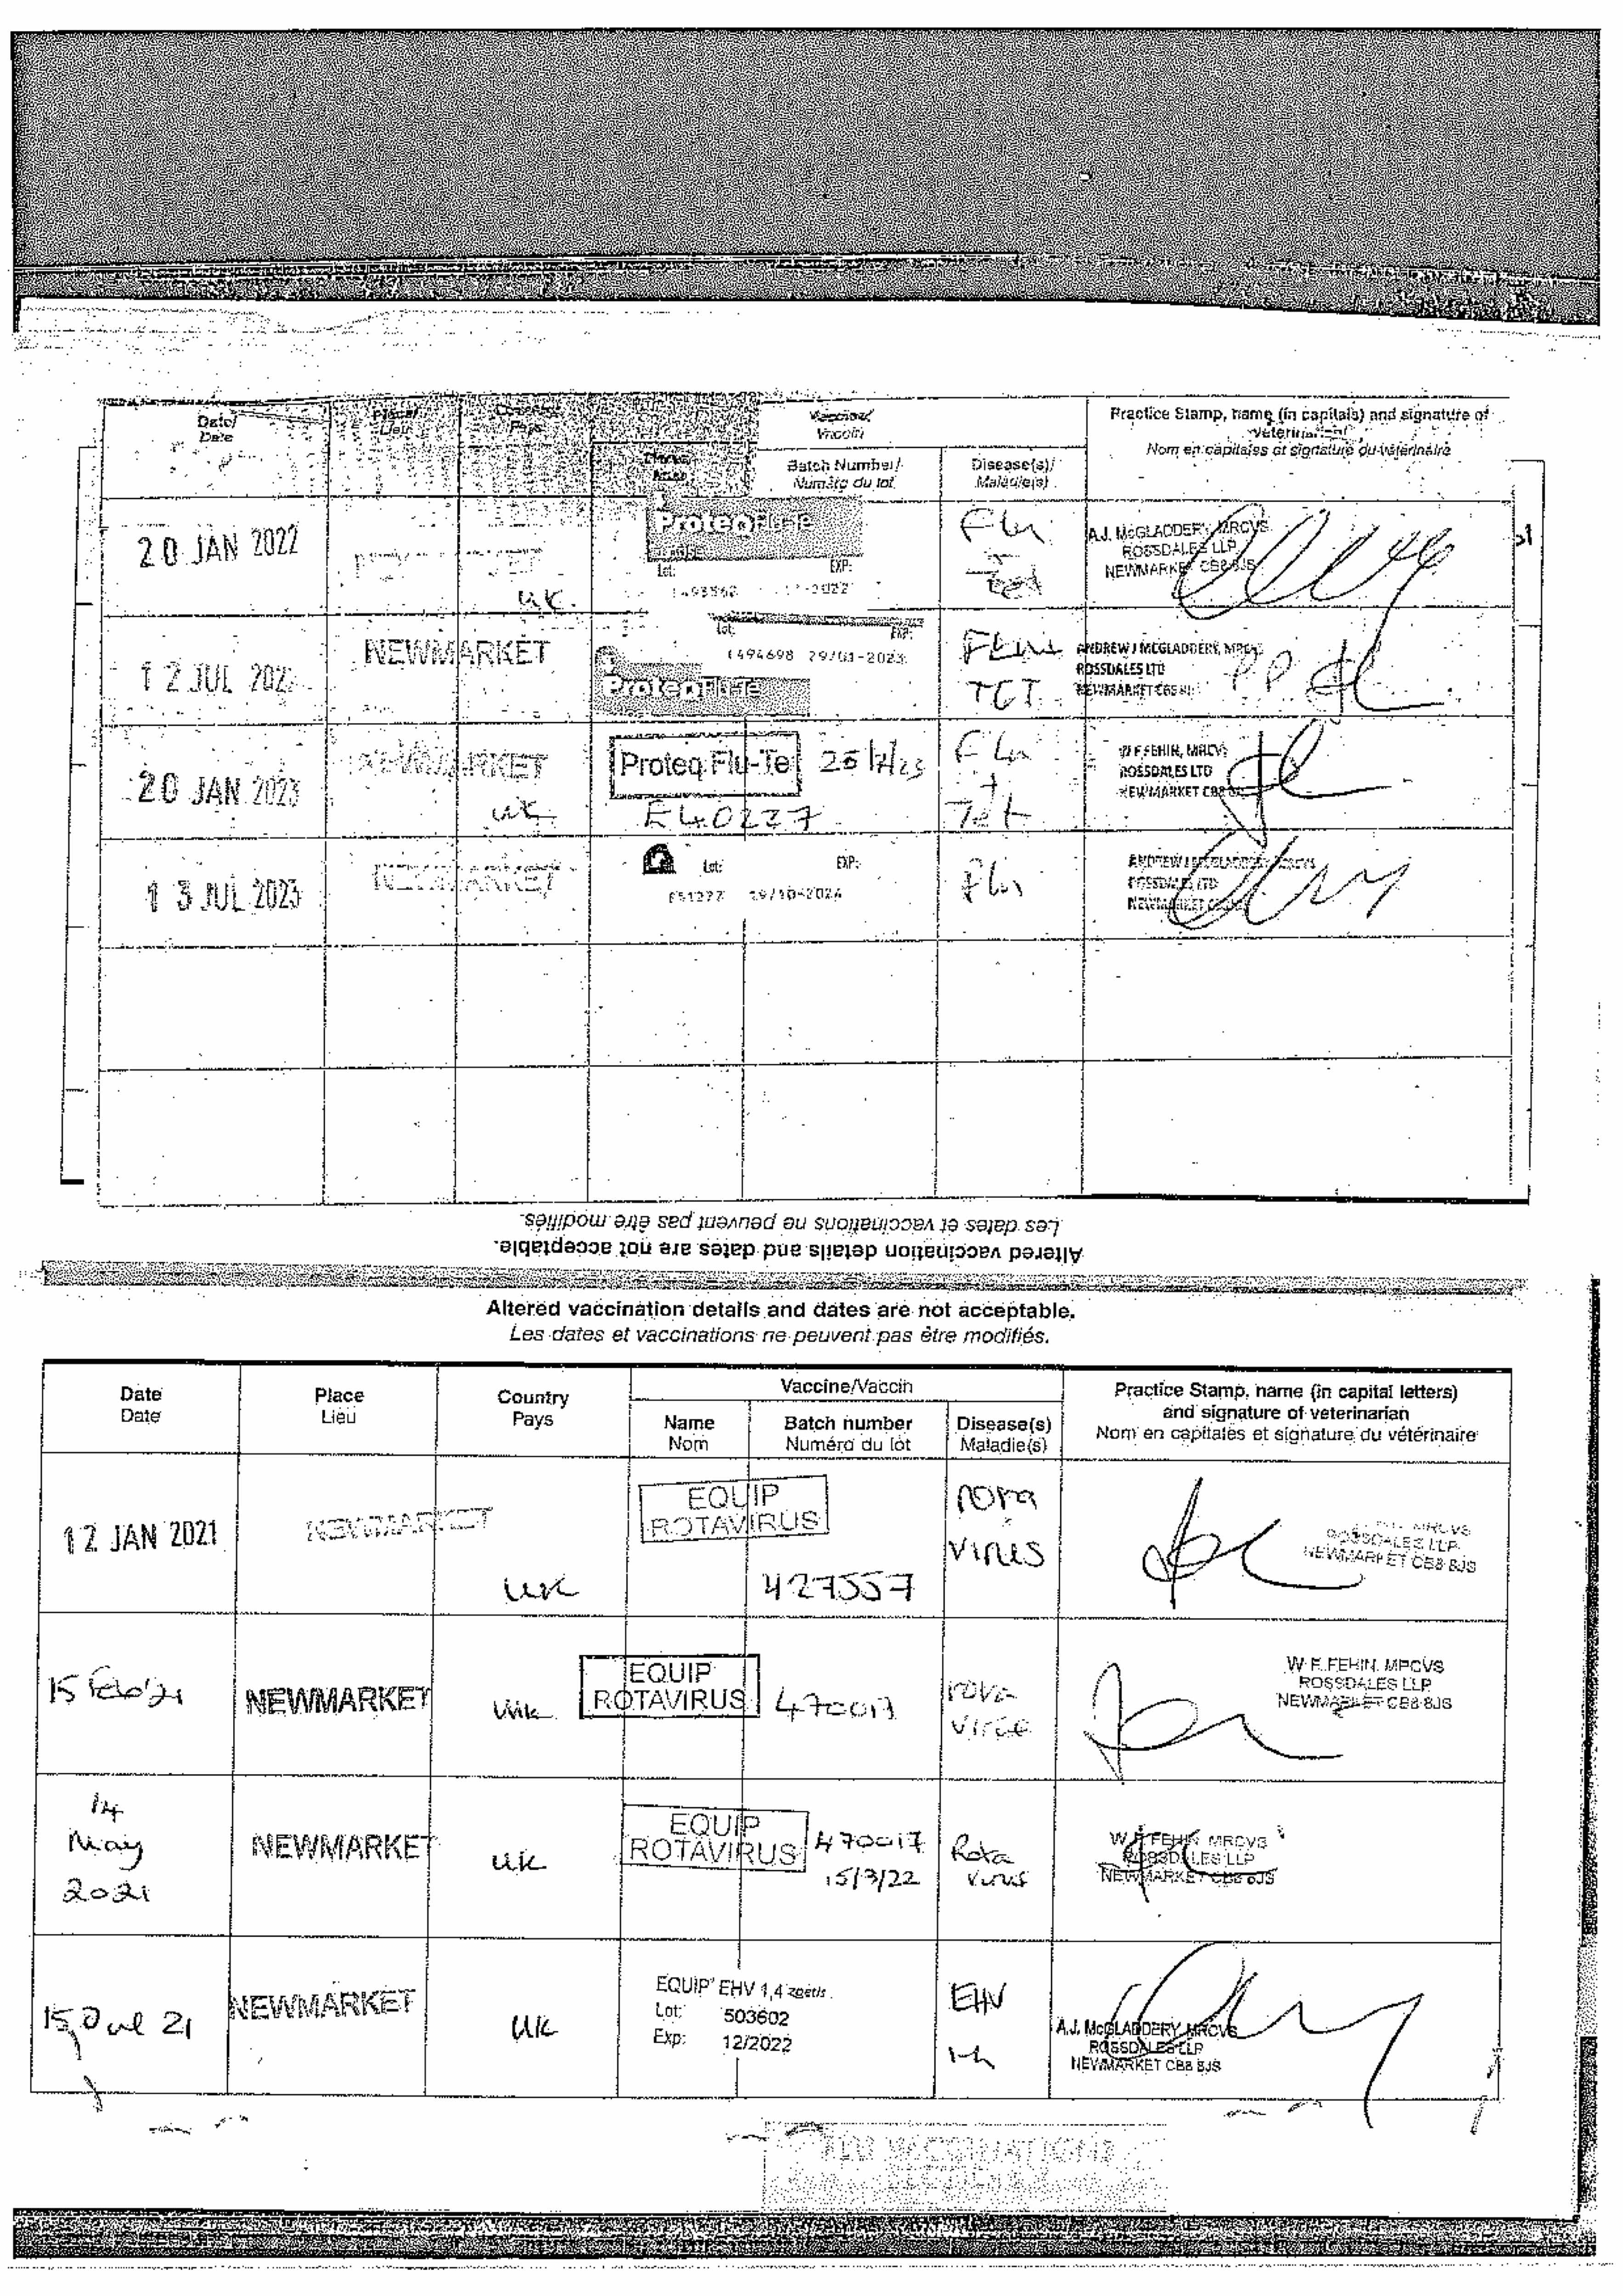 Date/
Date
Vaccine/
Vaccin
Batch Number/
Numéro du lot
Disease(s)/
Maladie(s)
Practice Stamp, name (in capitals) and signature of
veterinarian
Nom en capitales et signature du vétérinaire
20 JAN 2022
UK
ProteqFlu-Te
Lot: EXP:
Flu
Tet
A.J. McGLADDERY MRCVS
ROSSDALES LLP
NEWMARKET CB8 8JS
12 JUL
NEWMARKET
Lot: EXP:
E494698 29/01-2023
ProteqFlu-Te
Flu
TET
ANDREW J MCGLADDERY, MRCVS
ROSSDALES LTD
NEWMARKET CB8 8JS
PP
20 JAN 2023
NEWMARKET
UK
Proteq Flu-Te
E40237
Flu
+
Tet
W F FEHIN, MRCVS
ROSSDALES LTD
NEWMARKET CB8
13 JUL 2023
NEWMARKET
Lot: EXP:
E51277 19/10-2024
Flu
ANDREW J MCGLADDERY, MRCVS
ROSSDALES LTD
NEWMARKET
Les dates et vaccinations ne peuvent pas être modifiés.
Altered vaccination details and dates are not acceptable.
Altered vaccination details and dates are not acceptable.
Les dates et vaccinations ne peuvent pas être modifiés.
Date
Date
Place
Lieu
Country
Pays
Vaccine/Vaccin
Name
Nom
Batch number
Numéro du lot
Disease(s)
Maladie(s)
Practice Stamp, name (in capital letters)
and signature of veterinarian
Nom en capitales et signature du vétérinaire
12 JAN 2021
NEWMARKET
UK
EQUIP
ROTAVIRUS
427557
rota
virus
MRCVS
ROSSDALES LLP
NEWMARKET CB8 8JS
15 Feb '21
NEWMARKET
UK
EQUIP
ROTAVIRUS
470017
rota
virus
W. F. FEHIN MRCVS
ROSSDALES LLP
NEWMARKET CB8 8JS
14
May
2021
NEWMARKET
UK
EQUIP
ROTAVIRUS
470017
15/3/22
Rota
virus
W F FEHIN MRCVS
ROSSDALES LLP
NEWMARKET CB8 8JS
15 Jul 21
NEWMARKET
UK
EQUIP EHV 1,4 zoetis
Lot: 503602
Exp: 12/2022
EHV
1,4
A.J. McGLADDERY MRCVS
ROSSDALES LLP
NEWMARKET CB8 8JS
FLU VACCINATIONS